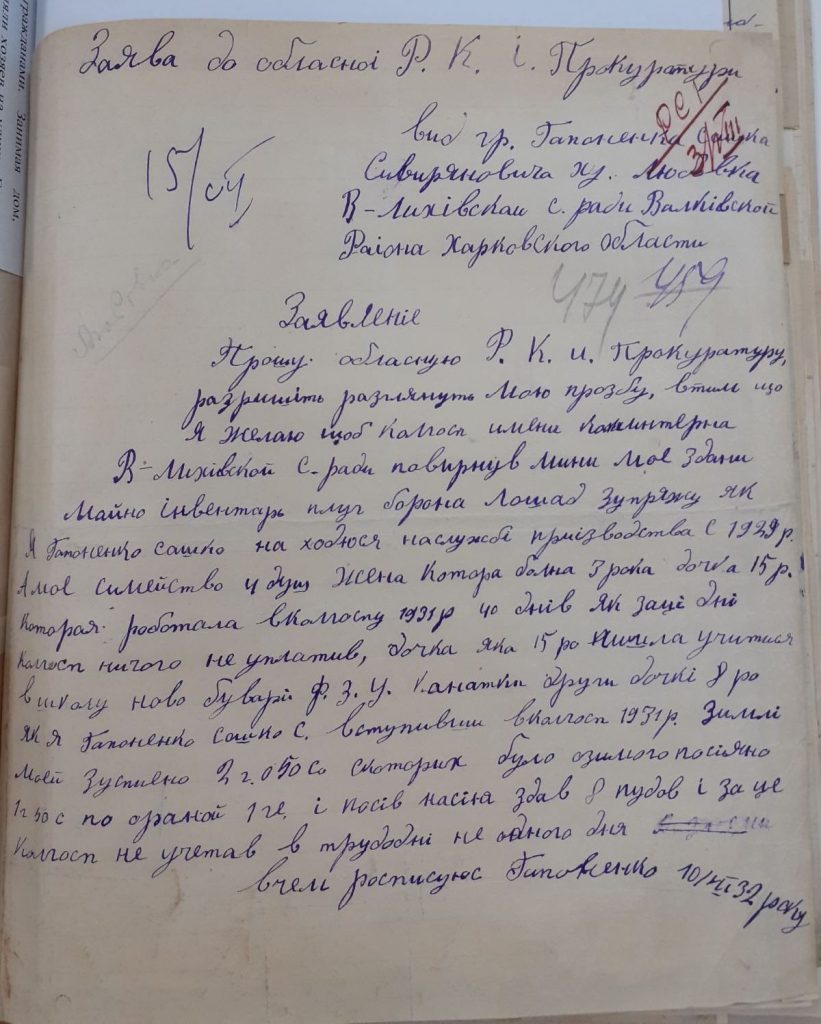 Заява до обласноі Р. К. і. Прокуратури
вид гр. Гапоненка Сашка
Сивиряновича ху. Любовка
В-Лихівскаи с. ради Валківской
Раіона Харковского области
15/
474 459
Любовка
Заявленіе
Прошу обласную Р. К. и. Прокуратуру,
разришіть разглянуть мою прозбу, втим що
я желаю щоб колгосп имени коминтерна
В-Лихівской с-ради повирнув мини мое здани
майно інвентарь плуг борона лошад зупряжу як
я Гапоненко сашко на ходюся наслужбі приізводства с 1929 р.
Амое симейство 4 душ жена котора болна 3 рока дочка 15 р.
которая роботала вколгоспу 1931 р 40 днів як заці дні
колгосп ничого не уплатив, дочка яка 15 ро учитися
вшколу ново Ф. З. У. Канатки други дочкі 8 ро
як я Гапоненко сашко с. вступивши вколгосп 1931 р. Зимлі
моей 2 г. 050 со скоторих було озимого посіяно
1 г 50 с по ораной 1 ге. і посів насіня здав 8 пудов і за це
колгосп не учетав в трудодні не одного дня
вчем росписуюс Гапоненко 10/VII 32 року